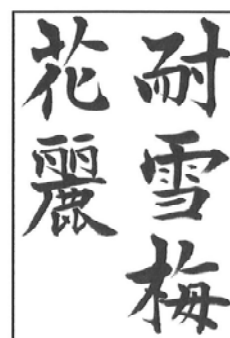 耐雪梅
花麗